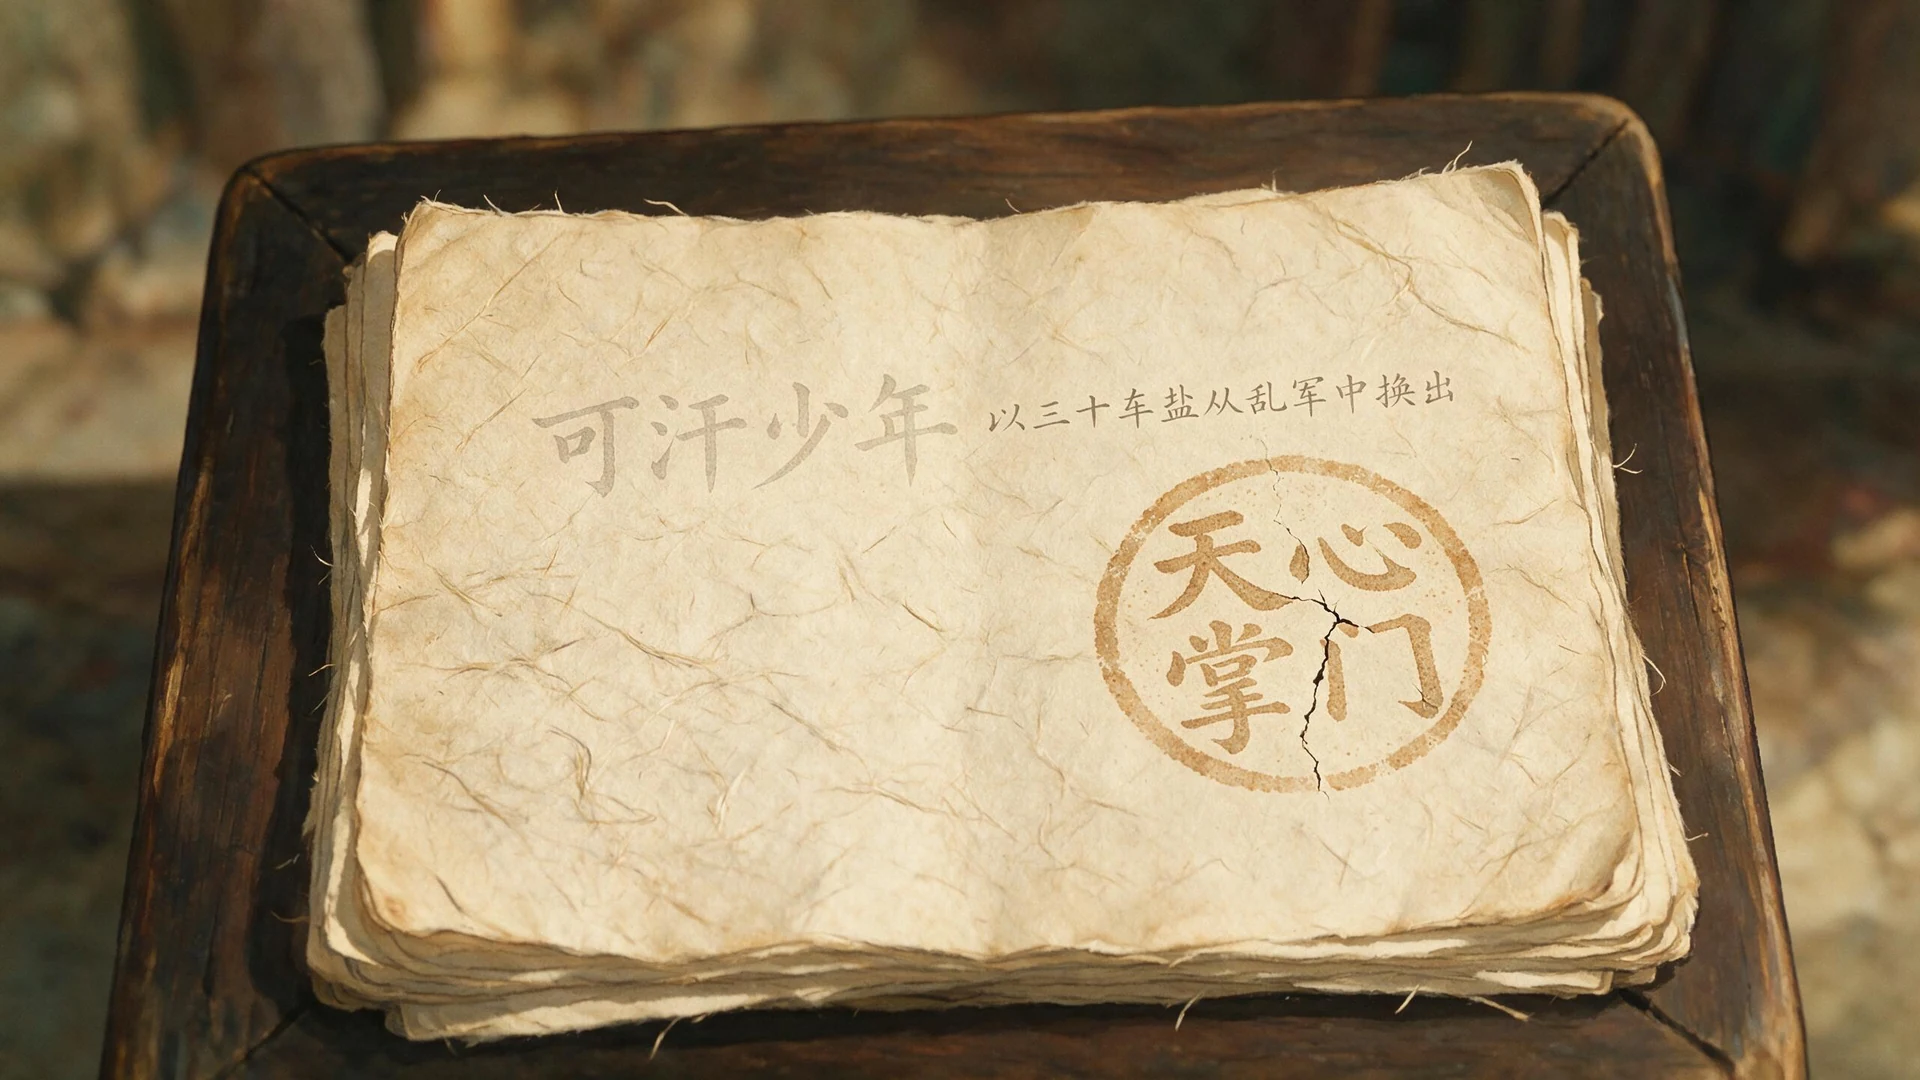 可汗少年
以三十车盐从乱军中换出
天心
掌门